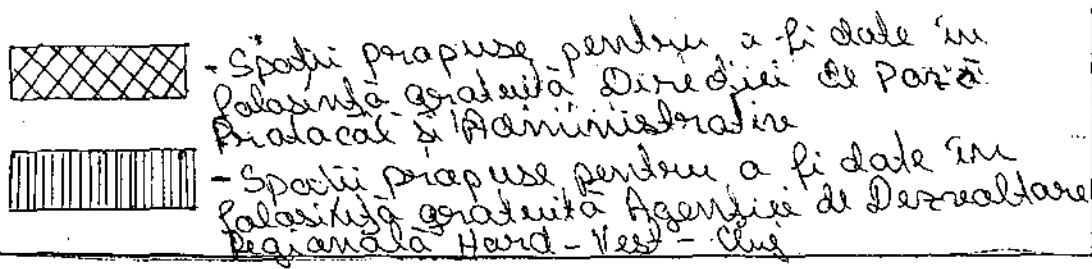 - Spații propuse pentru a fi date în
folosință gratuită Direcției de Pază
Protocol și Administrativ
- Spații propuse pentru a fi date în
folosință gratuită Agenției de Dezvoltare
Regională Nord - Vest - Cluj